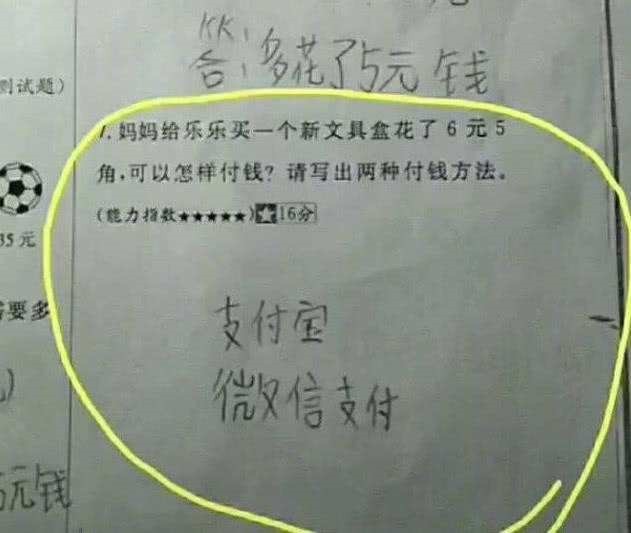 答：多花了5元钱
测试题）
7.妈妈给乐乐买一个新文具盒花了6元5
角,可以怎样付钱？请写出两种付钱方法。
(能力指数★★★★★)★16分
35元
需要多
支付宝
微信支付
5元钱